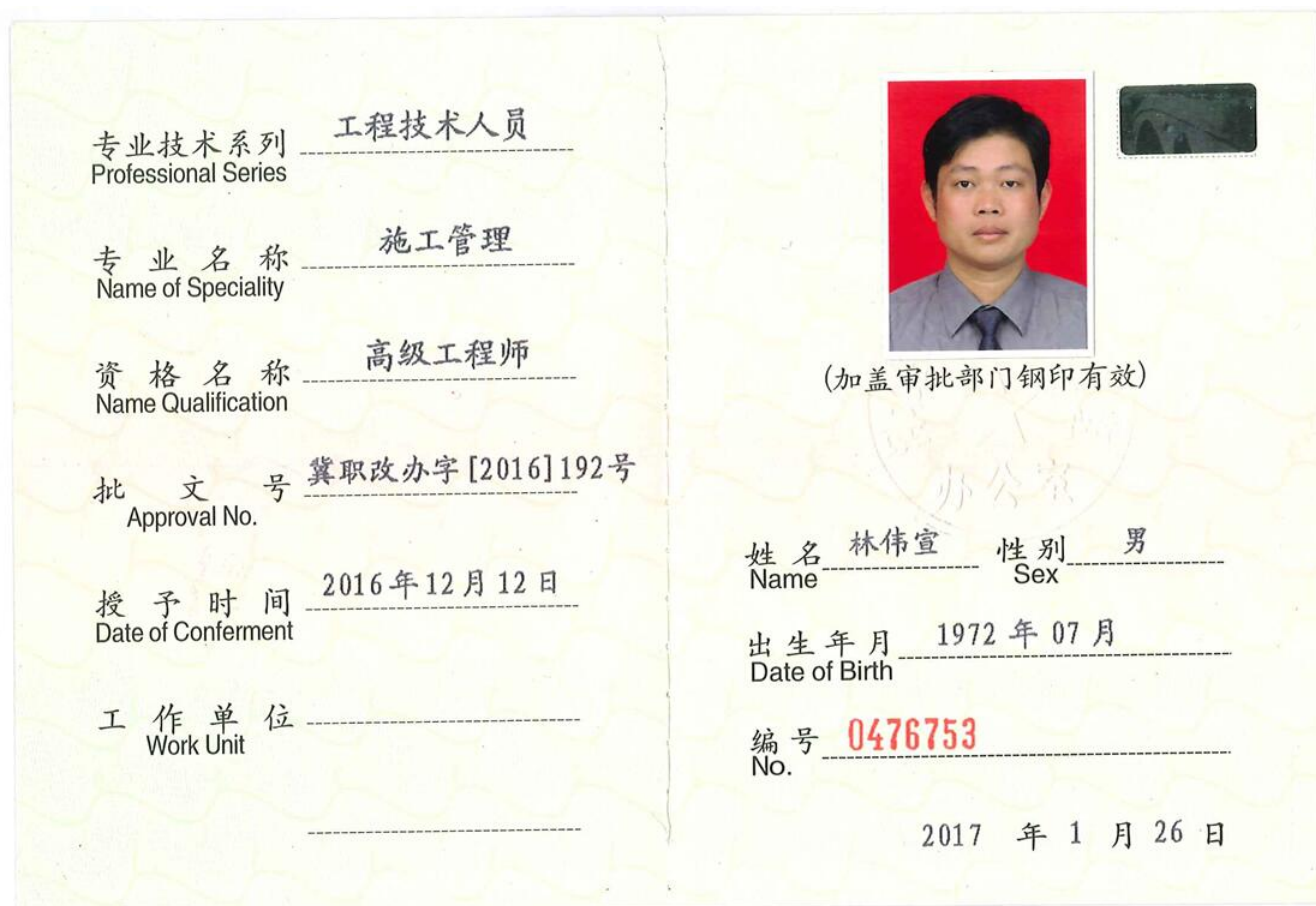 专业技术系列 工程技术人员
Professional Series
专业名称 施工管理
Name of Speciality
资格名称 高级工程师
Name Qualification
批文号 冀职改办字[2016]192号
Approval No.
授予时间 2016年12月12日
Date of Conferment
工作单位
Work Unit
(加盖审批部门钢印有效)
办公室
姓名 林伟宣 性别 男
Name Sex
出生年月 1972年07月
Date of Birth
编号 0476753
No.
2017 年 1 月 26 日